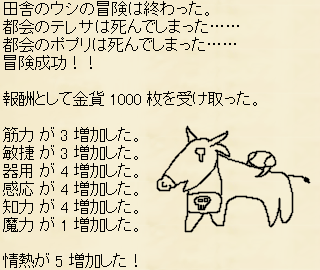 田舎のウシの冒険は終わった。
都会のテレサは死んでしまった……
都会のポプリは死んでしまった……
冒険成功！！
報酬として金貨 1000 枚を受け取った。
筋力 が 3 増加した。
敏捷 が 3 増加した。
器用 が 4 増加した。
感応 が 4 増加した。
知力 が 4 増加した。
魔力 が 1 増加した。
情熱が 5 増加した！